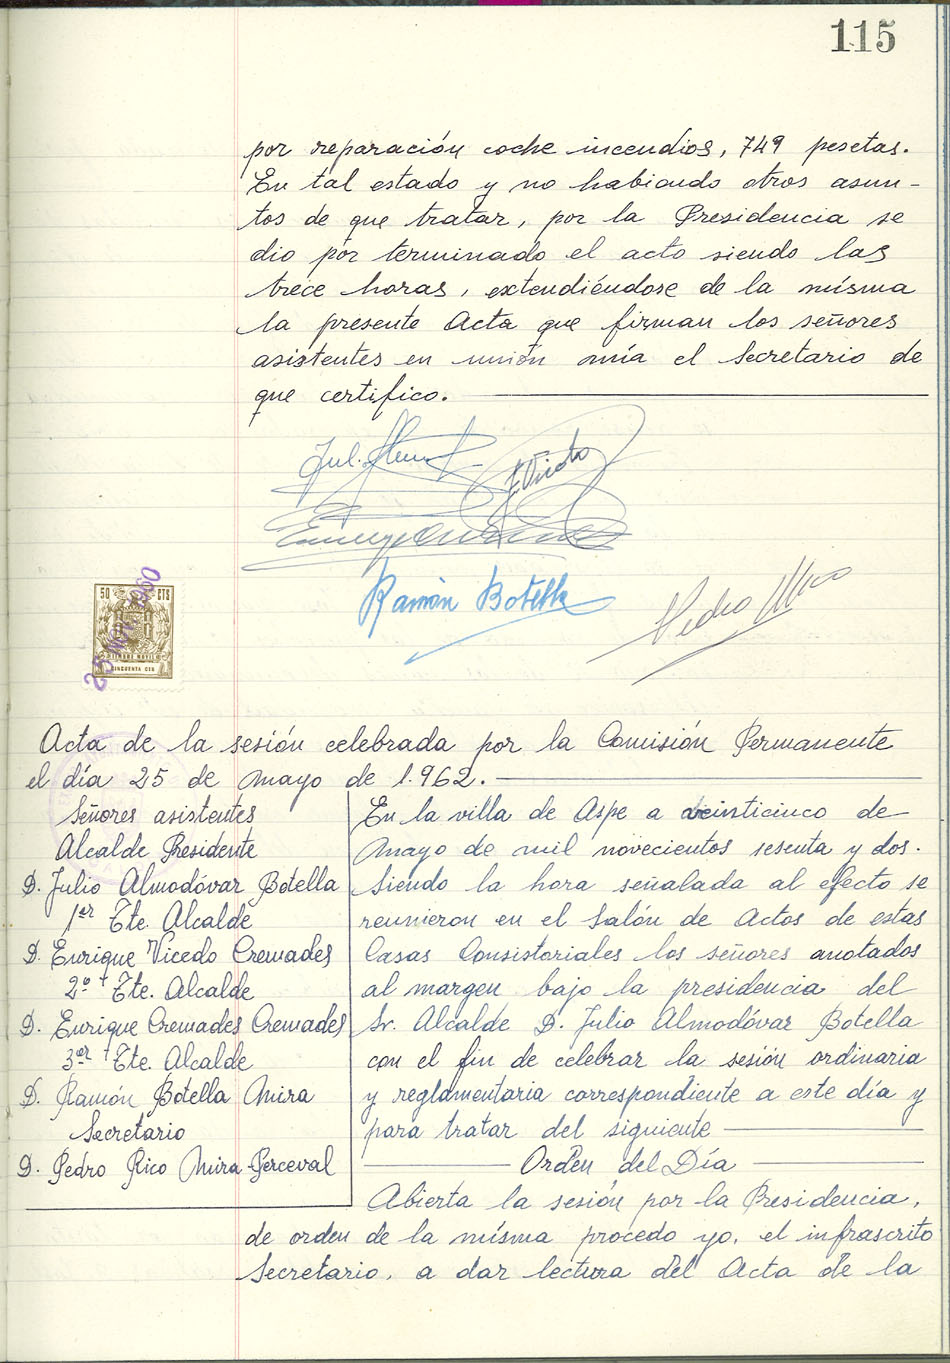 115
por reparación coche incendios, 749 pesetas.
En tal estado y no habiendo otros asun-
tos de que tratar, por la Presidencia se
dio por terminado el acto siendo las
trece horas, extendiéndose de la misma
la presente Acta que firman los señores
asistentes en unión mía el Secretario de
que certifico.
Ramón Botella
Pedro Rico
50 CTS
TIMBRE MOVIL
CINCUENTA CTS
25 NOV 1960
Acta de la sesión celebrada por la Comisión Permanente
el día 25 de Mayo de 1.962.
Señores asistentes
Alcalde Presidente
D. Julio Almodóvar Botella
1er Tte. Alcalde
D. Enrique Vicedo Cremades
2º Tte. Alcalde
D. Enrique Cremades Cremades
3er Tte. Alcalde
D. Ramón Botella Mira
Secretario
D. Pedro Rico Mira-Perceval
En la villa de Aspe a veinticinco de
Mayo de mil novecientos sesenta y dos.
Siendo la hora señalada al efecto se
reunieron en el Salón de Actos de estas
Casas Consistoriales los señores anotados
al margen bajo la presidencia del
Sr. Alcalde D. Julio Almodóvar Botella
con el fin de celebrar la sesión ordinaria
y reglamentaria correspondiente a este día y
para tratar del siguiente
Orden del Día
Abierta la sesión por la Presidencia,
de orden de la misma procedo yo, el infrascrito
Secretario, a dar lectura del Acta de la